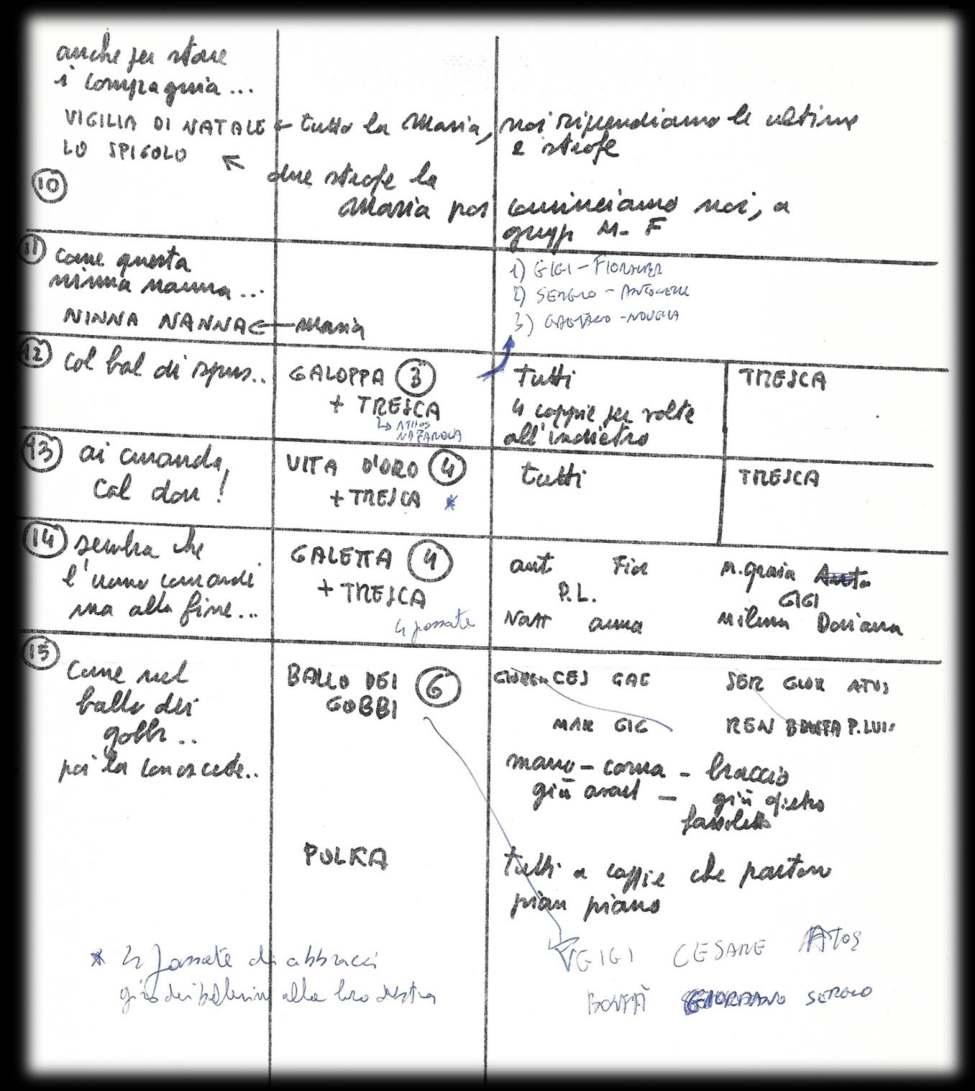 anche per stare
i compagnia...
VIGILIA DI NATALE ← tutto la Maria, noi riprendiamo le ultime
LO SPIGOLO
2 strofe
⑩
due strofe la
Maria poi cominciamo noi, a
M-F
⑪ come questa
ninna nanna...
NINNA NANNA ← Maria
1) GIGI -
2) SERGIO -
3) GAETANO - NOVELLA
⑫ col bal di
GALOPPA ③
+ TRESCA
tutti
4 coppie per volte
all'indietro
TRESCA
⑬ ai cmanda,
cal don!
VITA D'ORO ④
+ TRESCA *
tutti
TRESCA
⑭ sembra che
l'uomo comandi
ma alla fine...
GALETTA ④
+ TRESCA
4 passate
ant Fior M. Grazia
P.L. GIGI
anna Milena Doriana
⑮ Come nel
ballo dei
gobbi..
poi la conoscete..
BALLO DEI ⑥
GOBBI
CES GAE SER GIOR ATOS
MAR GIG REN P.LUI
mano - corna - braccio
giù - giù dietro
POLKA
tutti a coppie che partono
pian piano
* 4 passate di abbracci
giro dei ballerini alla loro destra
GIGI CESARE ATOS
GIORDANO SERGIO